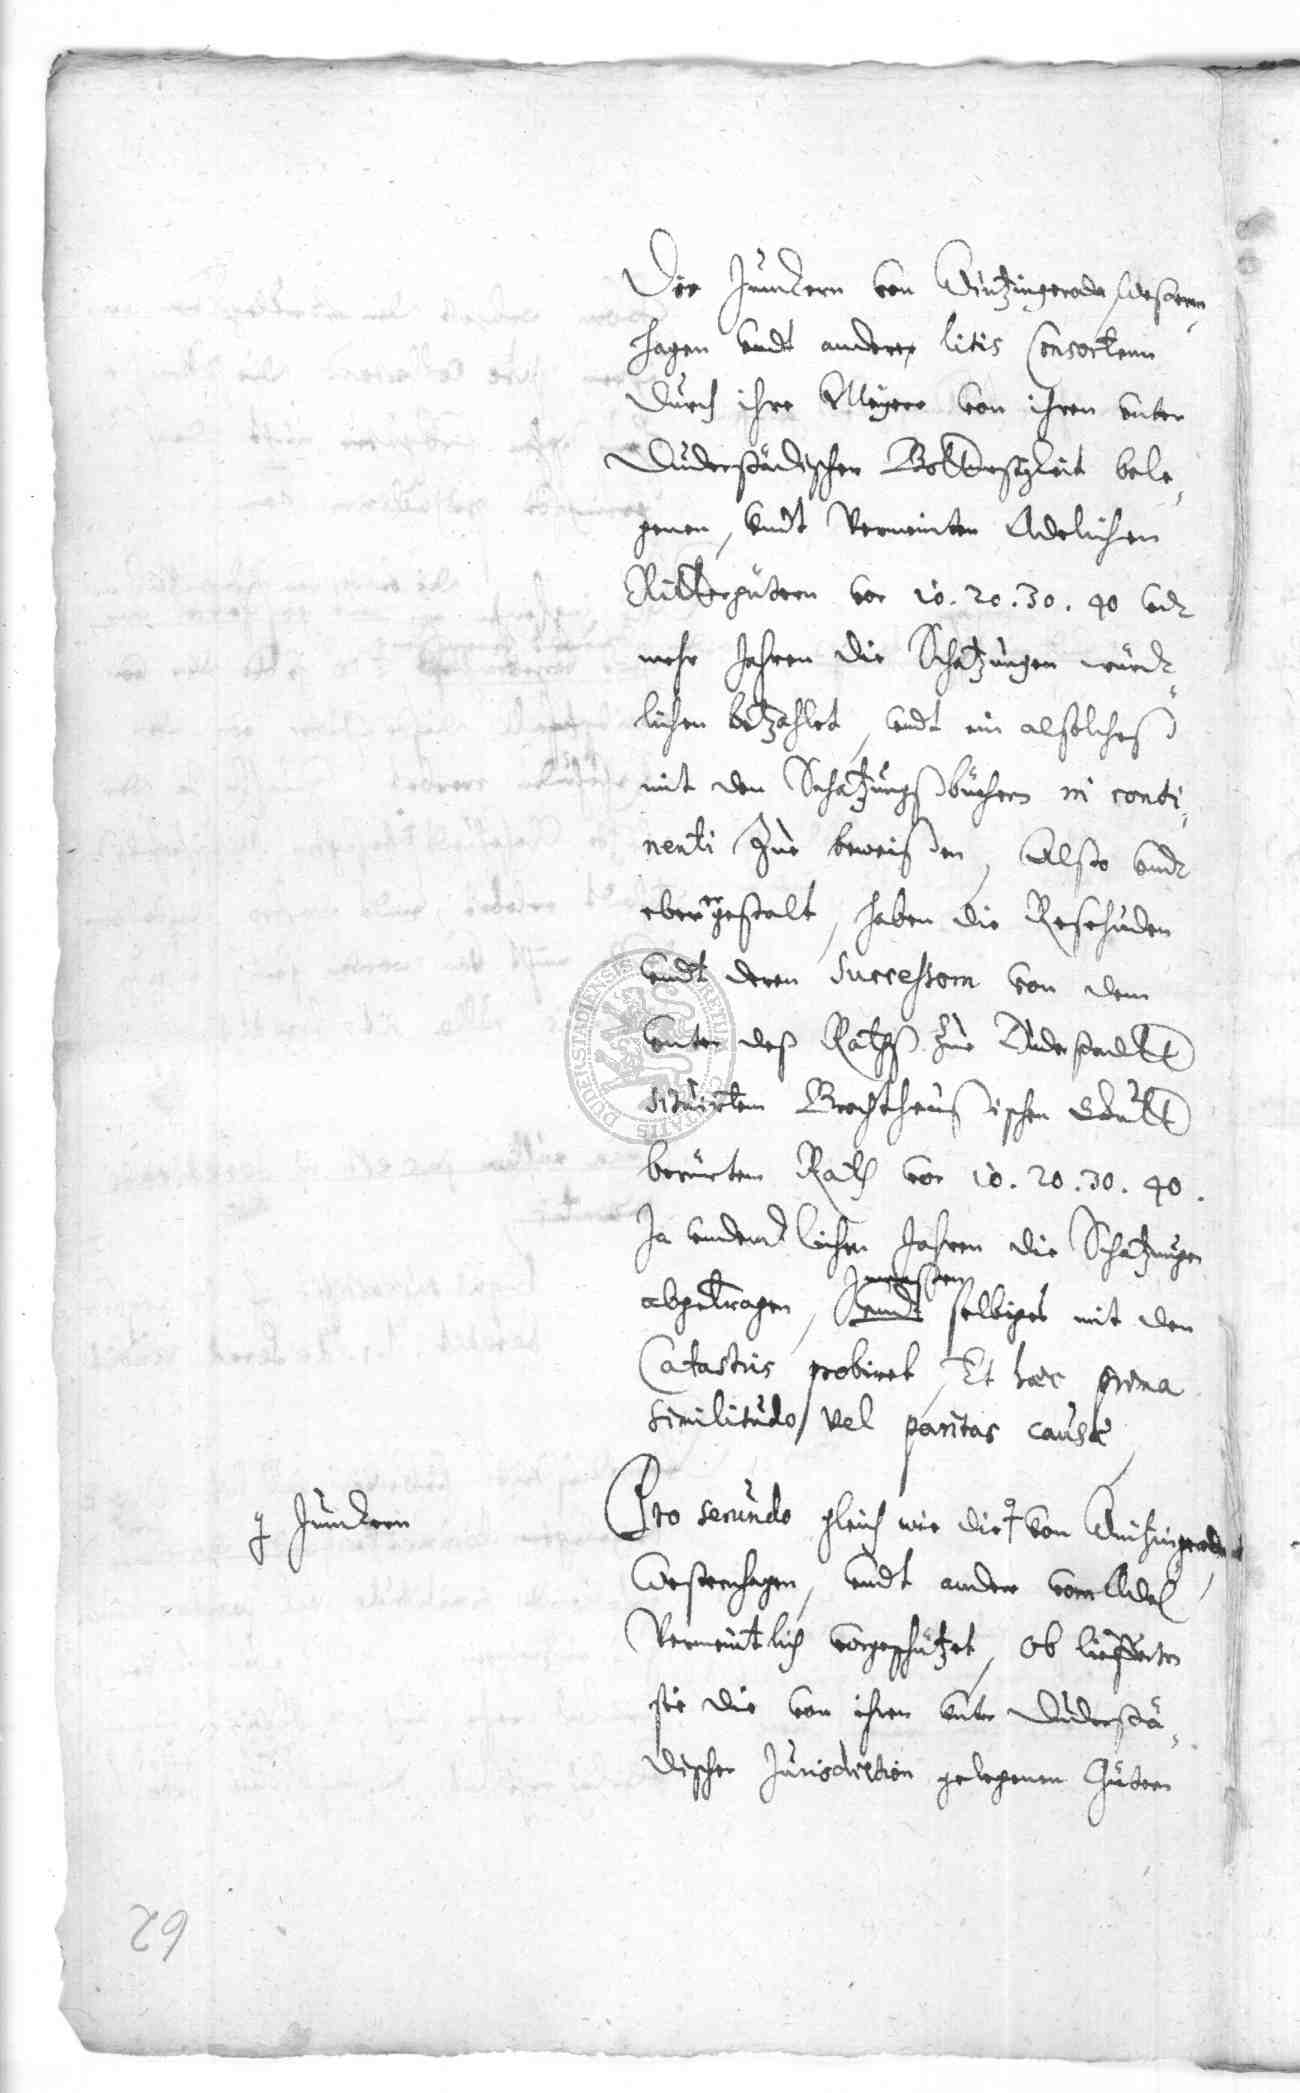 Die Junckern von Wintzingeroda, Western-
hagen vndt andere litis Consortenn
durch ihre Meyere von ihren vnter
Duderstädischer Bottmeßigkeit bele-
genen, vndt vermeinten Adelichen
Rittergütern vor 10. 20. 30. 40 vndt
mehr Jahren die Schatzungen würck-
lichen betzahlet, vndt ein alßolcheß
mit den Schatzungßbüchern in conti-
nenti zue beweißen, Alßo vndt
ebenergestalt, haben die
vndt deren Successorn von dem
vnter deß Rathß zue Duderstadtt
situirtem Brochthaußischen
berürtem Rath vor 10. 20. 30. 40.
Ja vndencklichen Jahren die Schatzungen
Inmaßen
abgetragen, vndt selbiges mit den
Catastris probiret, Et haec prima
similitudo, vel paritas causæ,
Junckern
Pro secundo gleich wie die von Wintzingeroda
Westernhagen, vndt andere vom Adel,
vermeintlich vorgeschützet, Ob lieffertn
sie die von ihren vnter Duderstä-
discher Jurisdiction gelegenen Gütern
29
DUDERSTADIENSIS CIVITATIS